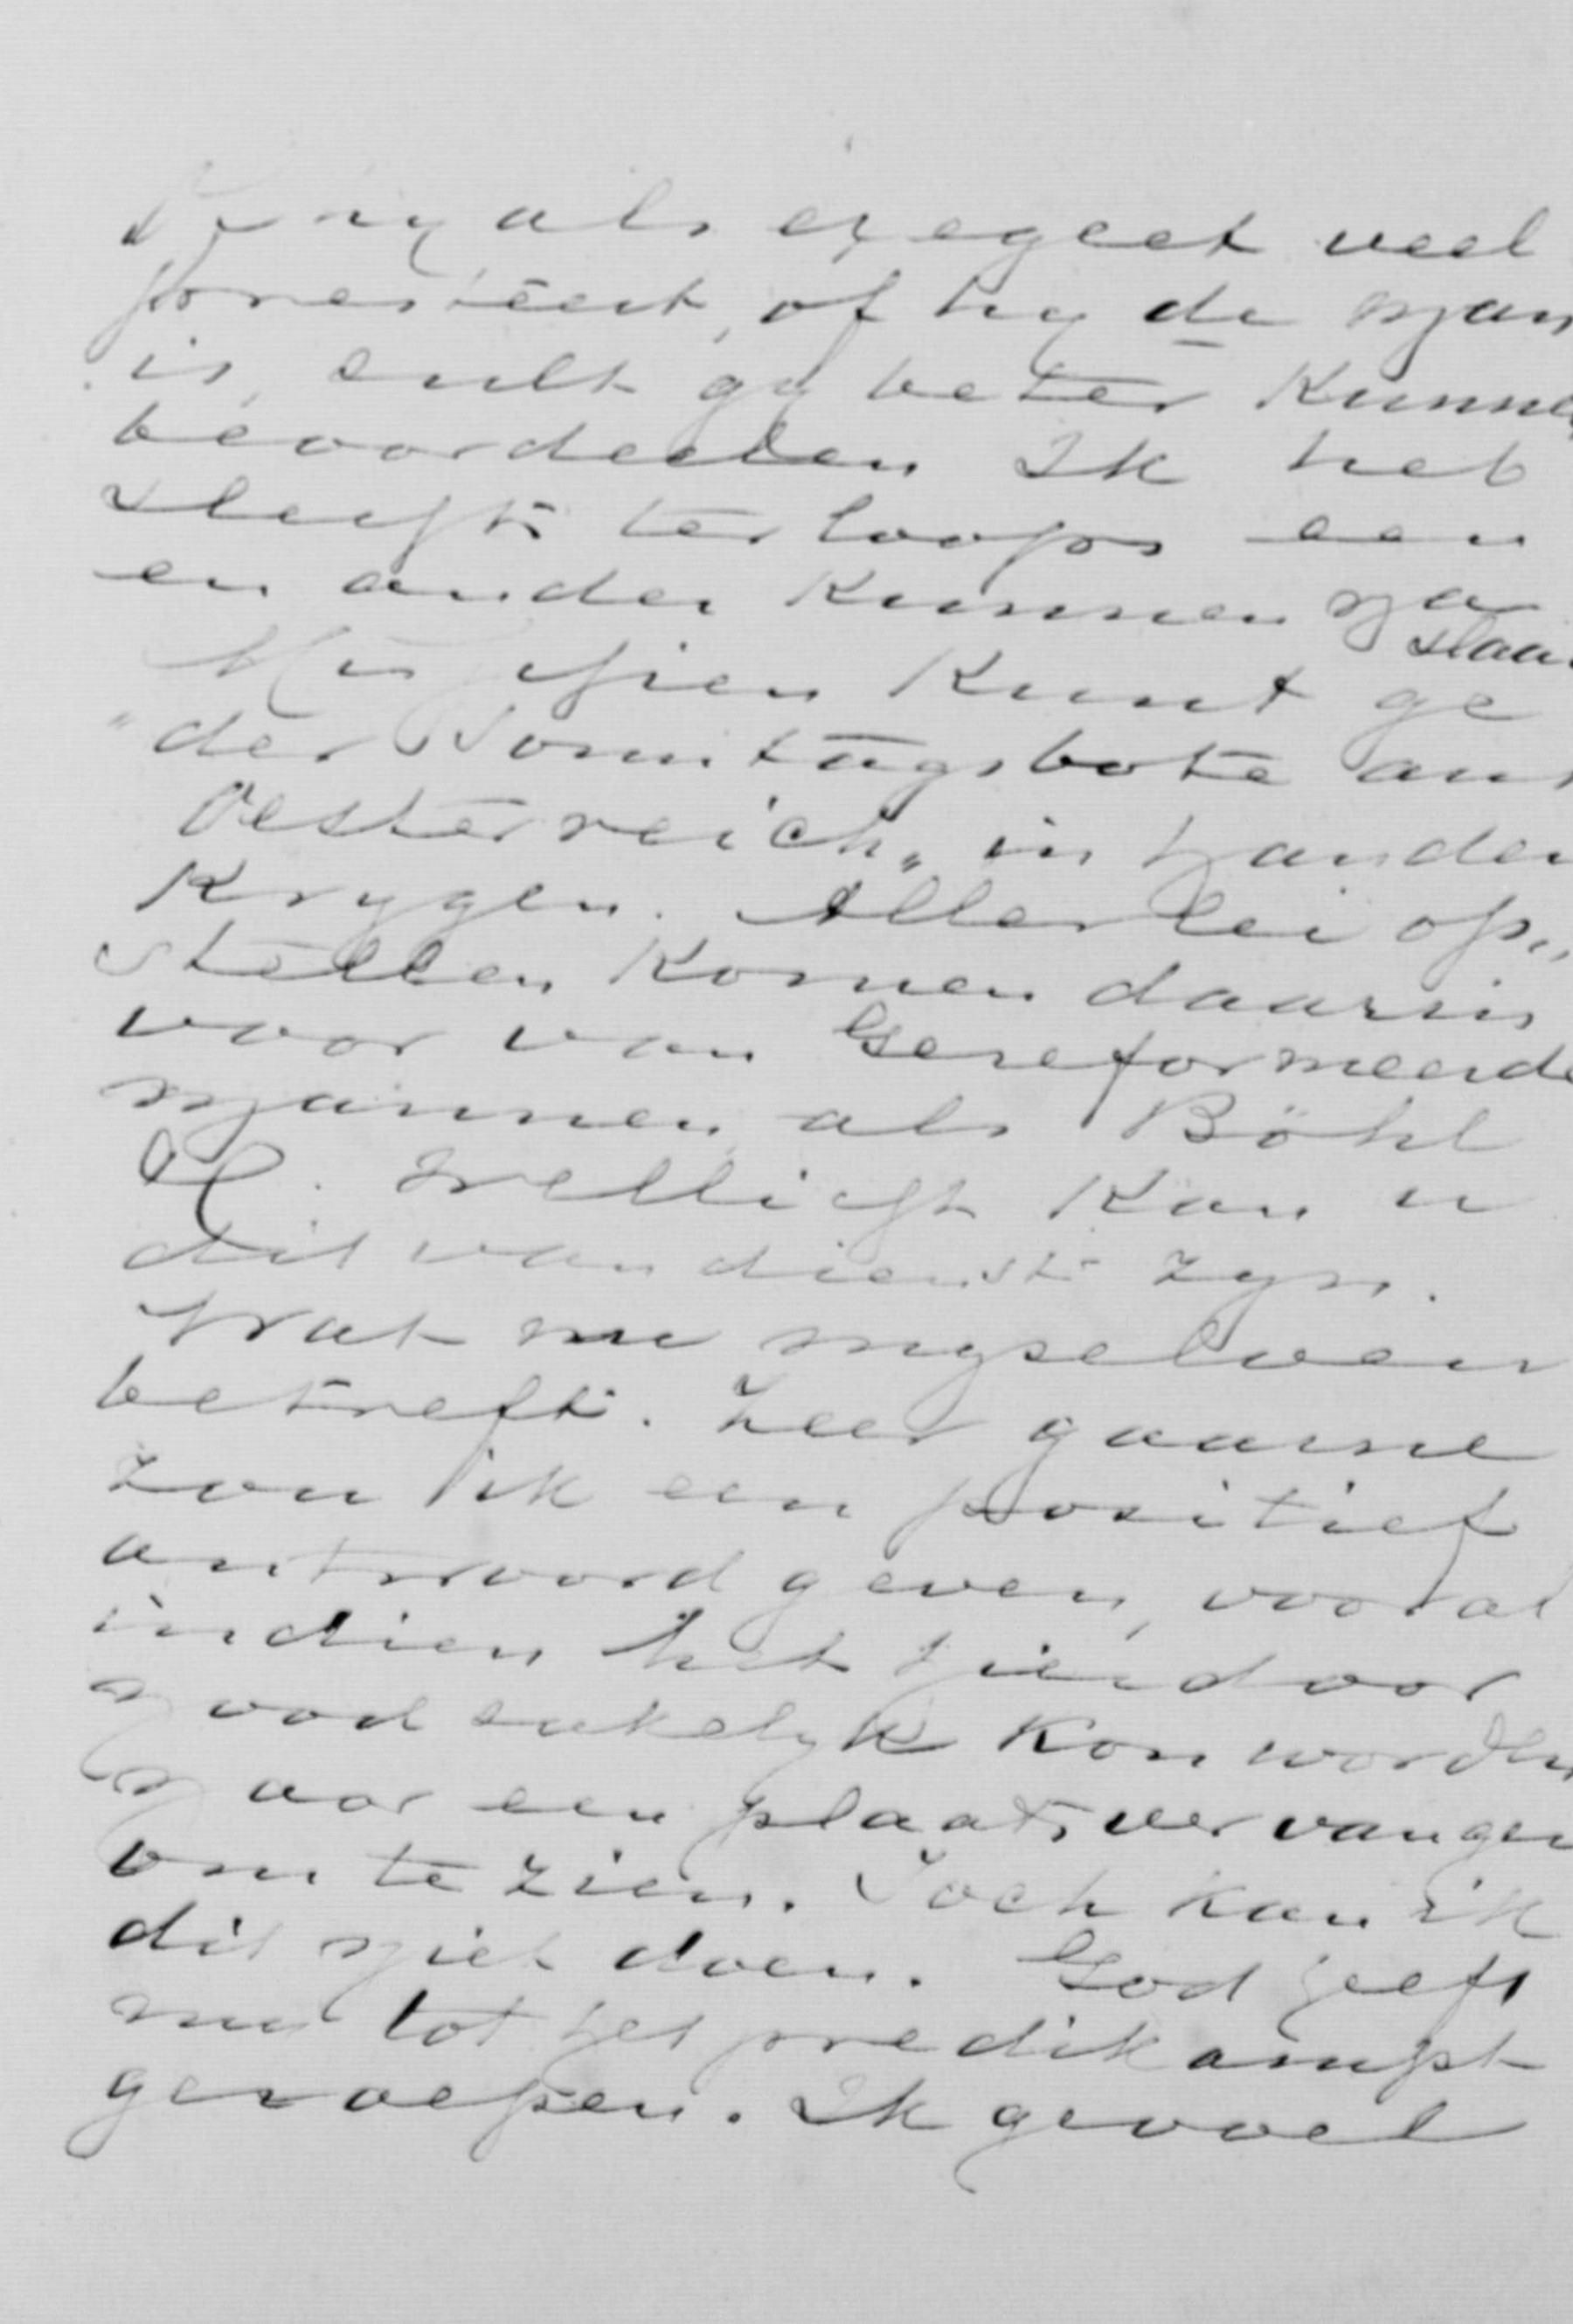 hy als exegeet veel
presteert, of hy de man
is, sult gy beter kunne
beoordeelen Ik heb
slechts terloops een
en ander kunnen na
slaan
Misschien kunt ge
"der Sonntagsbote aus
Oesterreich" in handen
krygen. Allerlei op„
stellen komen daarin
voor van Gereformeerde
mannen als Böhl
e. Wellicht kan u
dit van dienst zyn.
Wat nu myselven
betreft. Zeer gaarne
zou ik een positief
antwoord geven, vooral
indien het hierdoor
noodsakelyk kon worden
naar een plaatsvervanger
om te zien. Toch kan ik
dit niet doen. God heeft
my tot het predikampt
geroepen. Ik gevoel